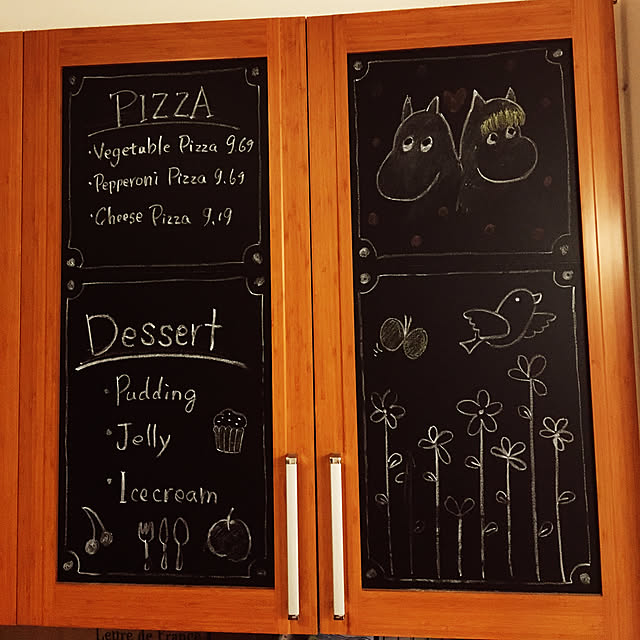 PIZZA
·Vegetable Pizza 9.69
·Pepperoni Pizza 9.69
·Cheese Pizza 9.19
Dessert
·Pudding
·Jelly
·Icecream
Lettre de France